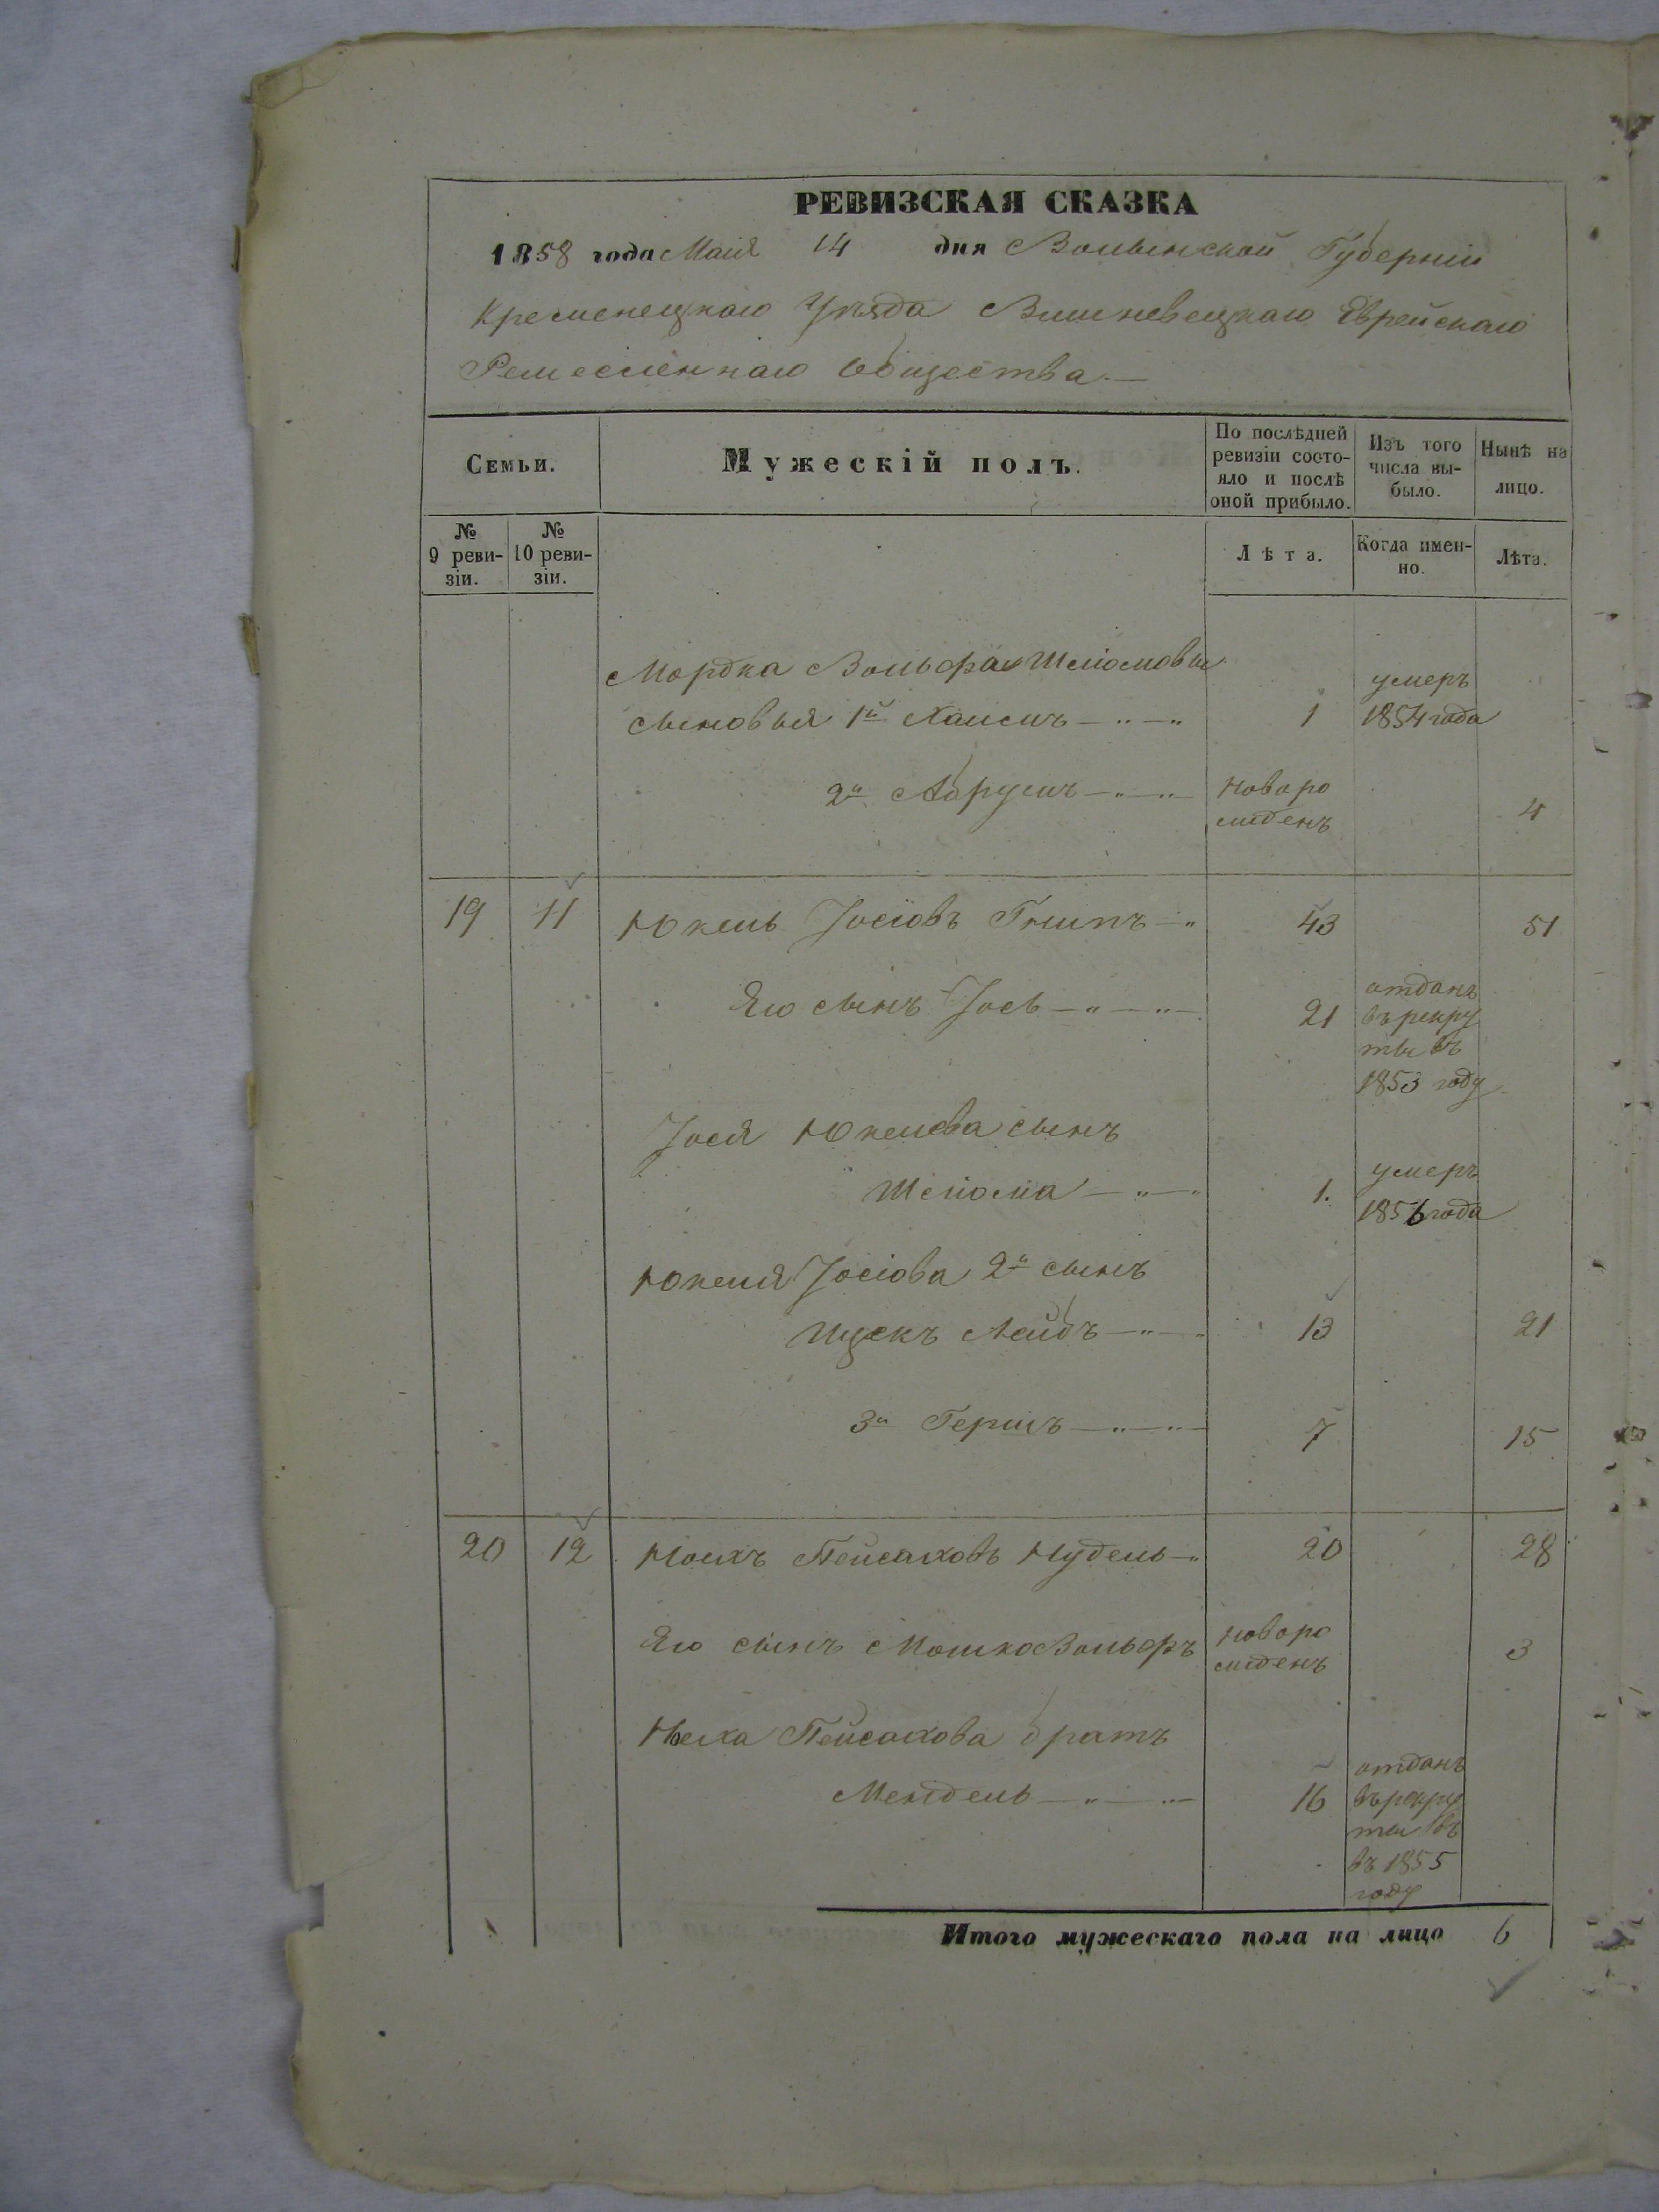 РЕВИЗСКАЯ СКАЗКА
1858 года Маія 14 дня Волынской Губерніи
Кременецкаго Уѣзда Вишневецкаго Еврейскаго
Ремесленнаго Общества.—
Семьи.
Мужескій полъ.
По послѣдней
ревизіи состо-
яло и послѣ
оной прибыло.
Изъ того
числа вы-
было.
Нынѣ на
лицо.
№
9 реви-
зіи.
№
10 реви-
зіи.
Лѣта.
Когда имен-
но.
Лѣта.
Мордка Вольфа Шліомовы умеръ
сыновья 1й Хаимъ — " — " 1 1854 года
2й Абрумъ — " — " Новоро
жденъ 4
19 11 Юкель Іосіовъ Гнипъ — " 43 51
Его сынъ Іось — " — " — 21 отданъ
въ рекру
ты въ
1853 году
Іося Юкелева сынъ
Шліома — " — " 1. умеръ
1856 года
Юкеля Іосіова 2й сынъ
Ицекъ Лейбъ — " — " 13 21
3й Гершъ — " — " — 7 15
20 12 Ноихъ Пейсаховъ Нудель — " 20 28
Его сынъ Мошко Вольфъ новоро
жденъ 3
Ноха Пейсахова братъ
Мендель — " — " — 16 отданъ
въ рекру
ты въ
въ 1855
году
Итого мужескаго пола на лицо 6